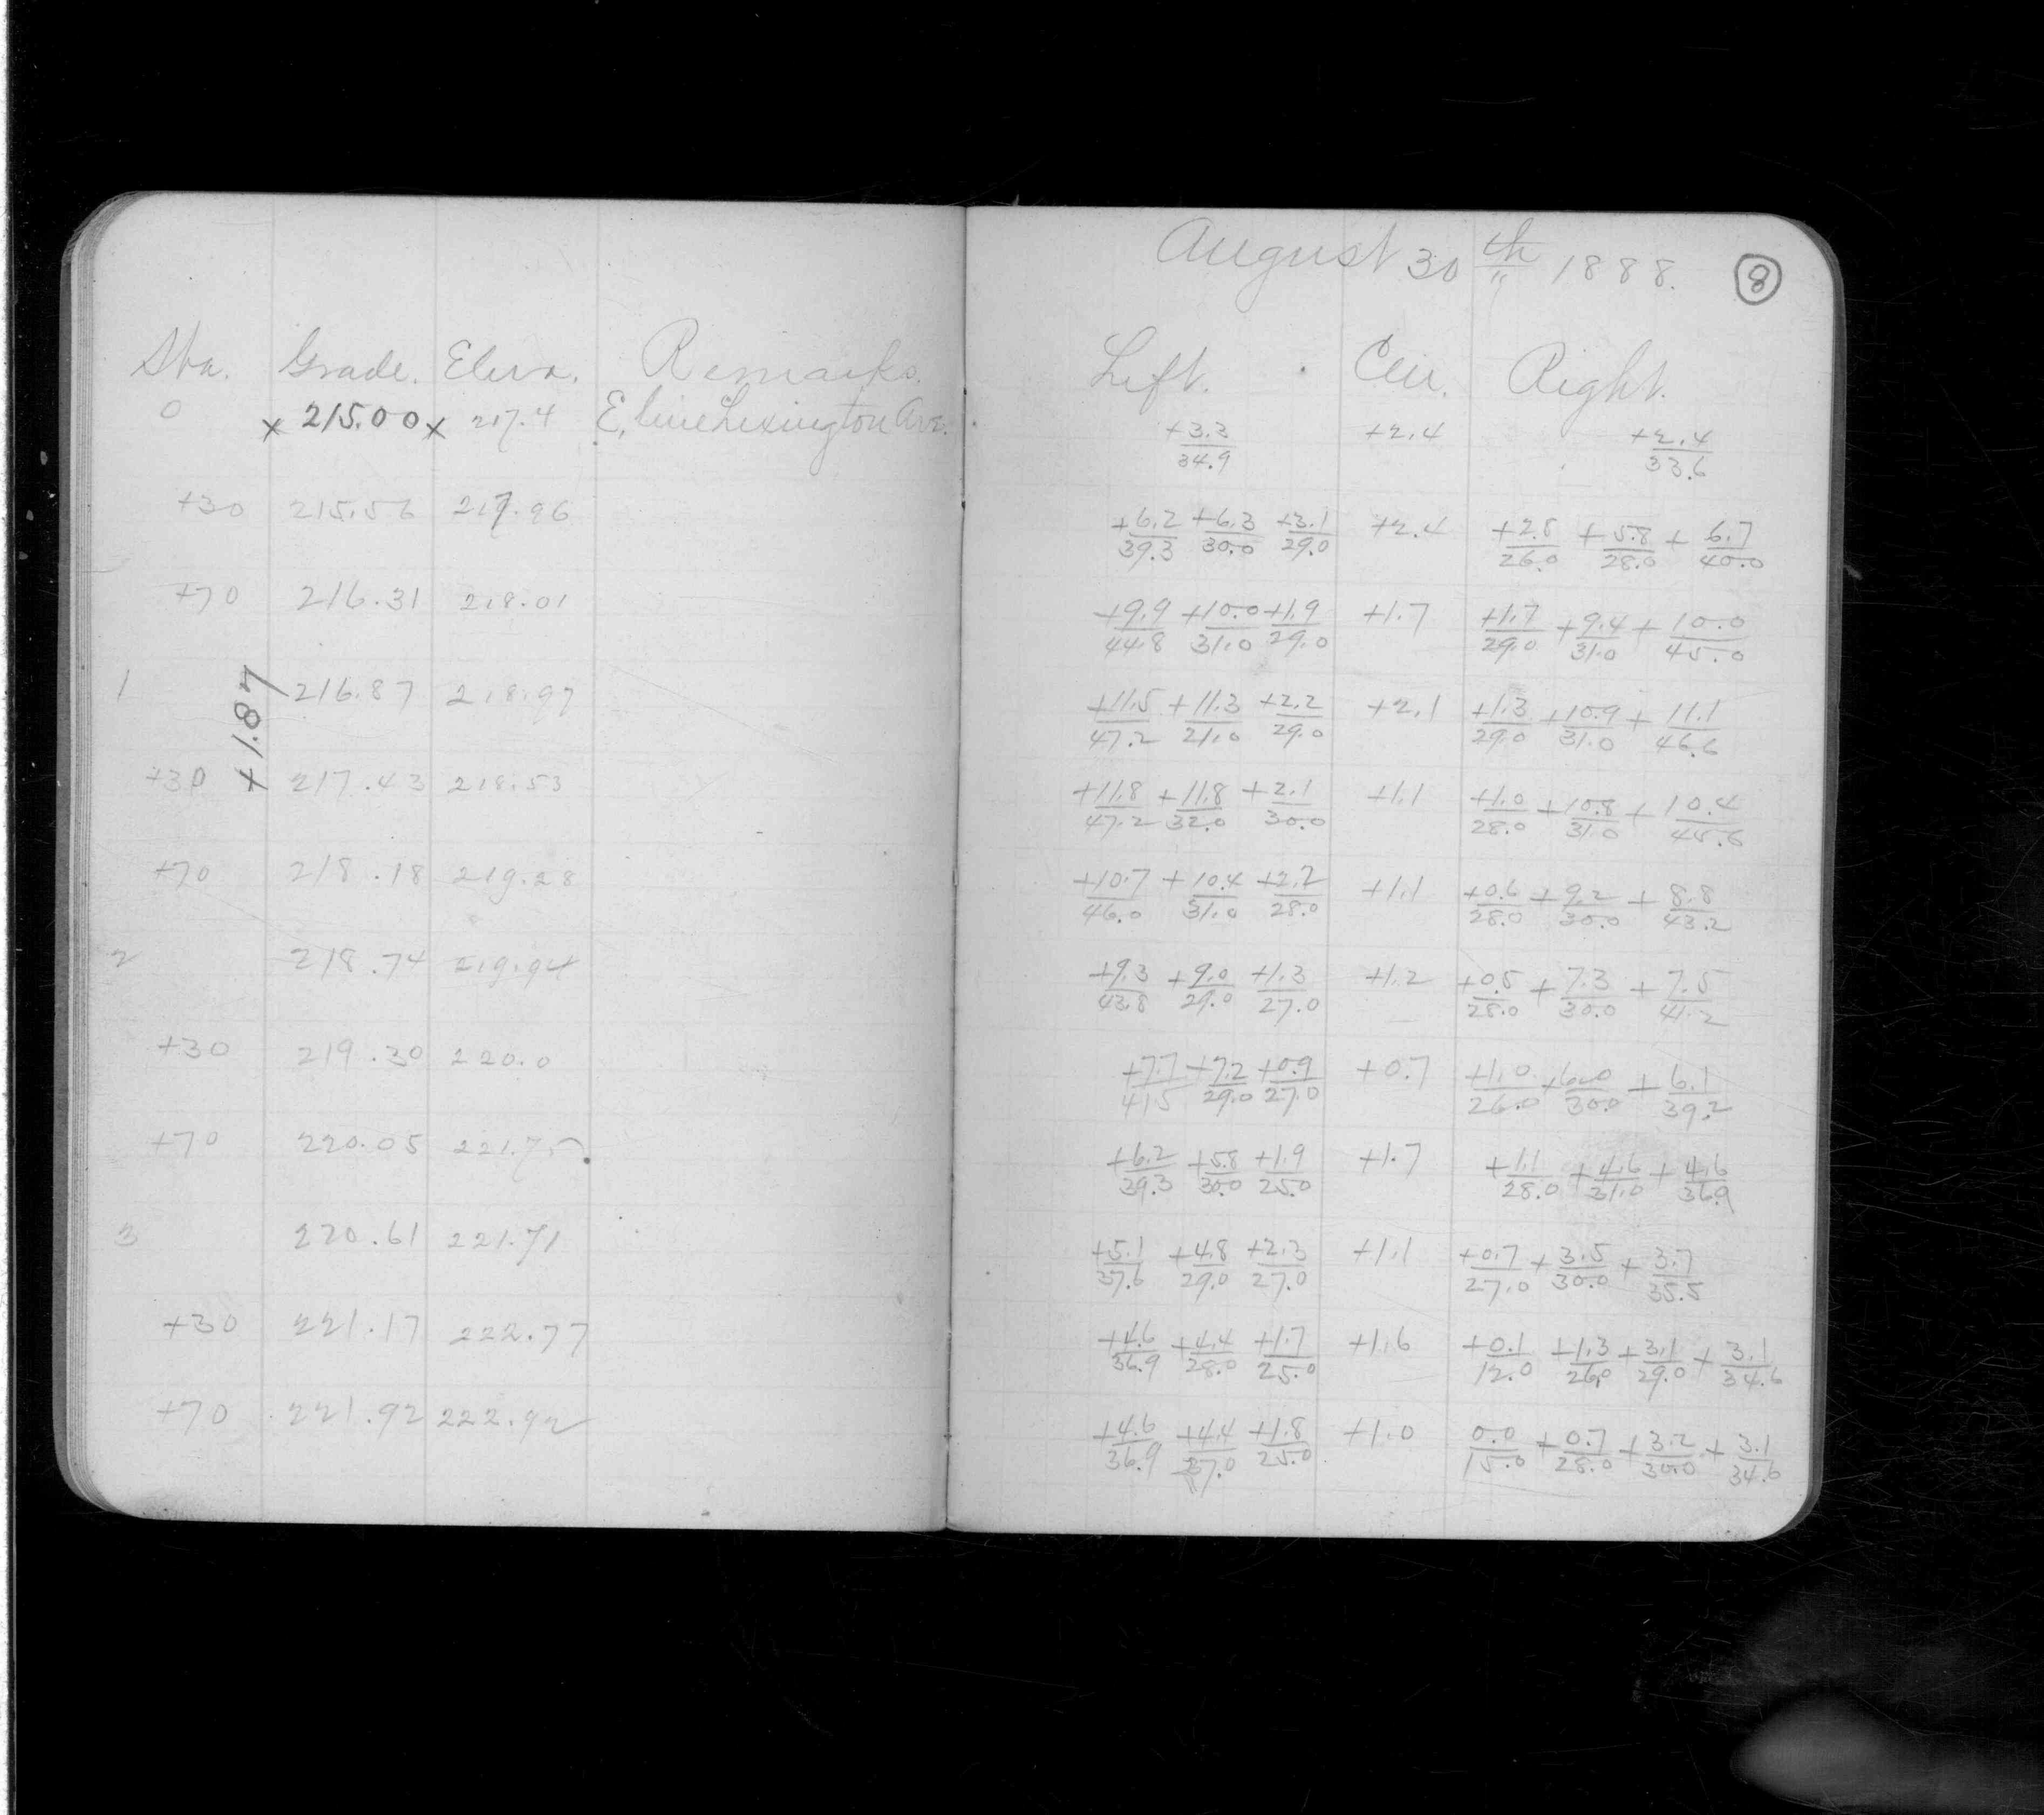 August 30 th 1888. 8
Sta. Grade. Elev. Remarks.
0 x 215.00 x 217.4 E. line Lexington Ave.
+30 215.56 217.96
+70 216.31 218.01
1 216.87 218.97
+1.87
+30 217.43 218.53
+70 218.18 219.28
2 218.74 219.94
+30 219.30 220.0
+70 220.05 221.75
3 220.61 221.71
+30 221.17 222.77
+70 221.92 222.92
Left. Cen. Right.
+3.3/34.9 +2.4 +2.4/33.6
+6.2/39.3 +6.3/30.0 +3.1/29.0 +2.4 +2.8/26.0 +5.8/28.0 + 6.7/40.0
+9.9/44.8 +10.0/31.0 +1.9/29.0 +1.7 +1.7/29.0 +9.4/31.0 + 10.0/45.0
+11.5/47.2 +11.3/21.0 +2.2/29.0 +2.1 +1.3/29.0 +10.9/31.0 + 11.1/46.6
+11.8/47.2 +11.8/32.0 +2.1/30.0 +1.1 +1.0/28.0 +10.8/31.0 + 10.4/45.6
+10.7/46.0 +10.4/31.0 +2.2/28.0 +1.1 +0.6/28.0 + 9.2/30.0 + 8.8/43.2
+9.3/43.8 +9.0/29.0 +1.3/27.0 +1.2 +0.5/28.0 + 7.3/30.0 + 7.5/41.2
+7.7/41.5 +7.2/29.0 +0.9/27.0 +0.7 +1.0/26.0 +6.0/30.0 + 6.1/39.2
+6.2/39.3 +5.8/30.0 +1.9/25.0 +1.7 +1.1/28.0 +4.6/31.0 + 4.6/36.9
+5.1/37.6 +4.8/29.0 +2.3/27.0 +1.1 +0.7/27.0 + 3.5/30.0 + 3.7/35.5
+4.6/36.9 +4.4/28.0 +1.7/25.0 +1.6 +0.1/12.0 +1.3/26.0 +3.1/29.0 + 3.1/34.6
+4.6/36.9 +4.4/27.0 +1.8/25.0 +1.0 0.0/15.0 +0.7/28.0 +3.2/30.0 + 3.1/34.6